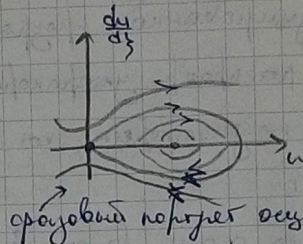 du
dξ
u
фазовый портрет осц